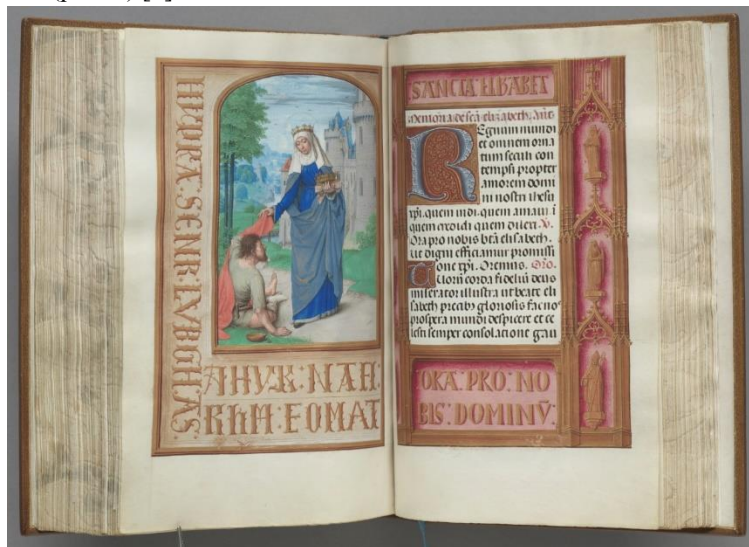 AHVK: NAH:
RHM: EOMAT
SANCTA: ELISABET
Memoria de scā elizabeth. Añs
Regnum mundi
et omnem orna
tum seculi con
tempsi propter
amorem domi
ni nostri ihesu
xp̄i. quem vidi. quem amaui i
quem credidi quem dilexi. V.
Ora pro nobis btā elisabeth.
ut digni efficiamur promissi
one xp̄i. Oremus. Oro.
Tuorū corda fidelíū deus
miserator illustra ut beate eli
sabeth precib9 gloriosis fac nos
prospera mundi despicere et ce
lesti semper consolatione gau
ORA: PRO: NO
BIS: DOMINV̄: